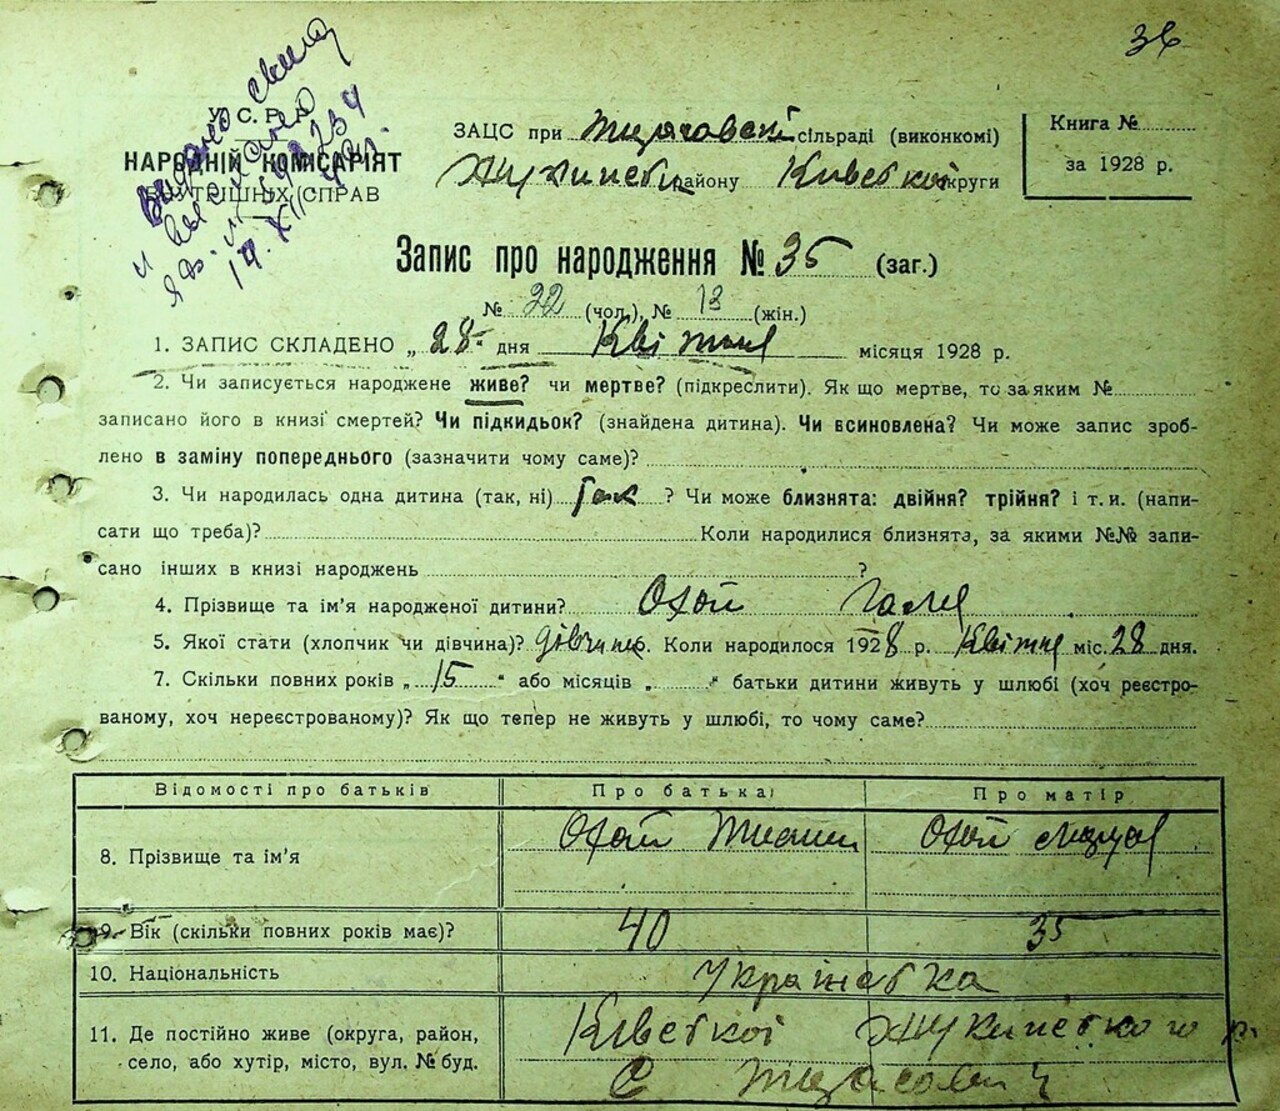 36
У. С. Р. Р.
НАРОДНІЙ КОМІСАРІЯТ
ВНУТРІШНІХ СПРАВ
ЗАЦС при сільраді (виконкомі)
району Київської округи
Книга №
за 1928 р.
Запис про народження № 35 (заг.)
№ 22 (чол.), № 13 (жін.)
1. ЗАПИС СКЛАДЕНО „ 28 " дня Квітня місяця 1928 р.
2. Чи записується народжене живе? чи мертве? (підкреслити). Як що мертве, то за яким №
записано його в книзі смертей? Чи підкидьок? (знайдена дитина). Чи всиновлена? Чи може запис зроб-
лено в заміну попереднього (зазначити чому саме)?
3. Чи народилась одна дитина (так, ні) Так ? Чи може близнята: двійня? трійня? і т. и. (напи-
сати що треба)? Коли народилися близнята, за якими №№ запи-
сано інших в книзі народжень ?
4. Прізвище та ім'я народженої дитини?
5. Якої стати (хлопчик чи дівчина)? дівчина. Коли народилося 1928 р. Квітня міс. 28 дня.
7. Скільки повних років „ 15 " або місяців „ " батьки дитини живуть у шлюбі (хоч реєстро-
ваному, хоч нереєстрованому)? Як що тепер не живуть у шлюбі, то чому саме?
Відомості про батьків Про батька Про матір
8. Прізвище та ім'я
9. Вік (скільки повних років має)? 40 35
10. Національність Українська
11. Де постійно живе (округа, район, Київської
село, або хутір, місто, вул. № буд. С